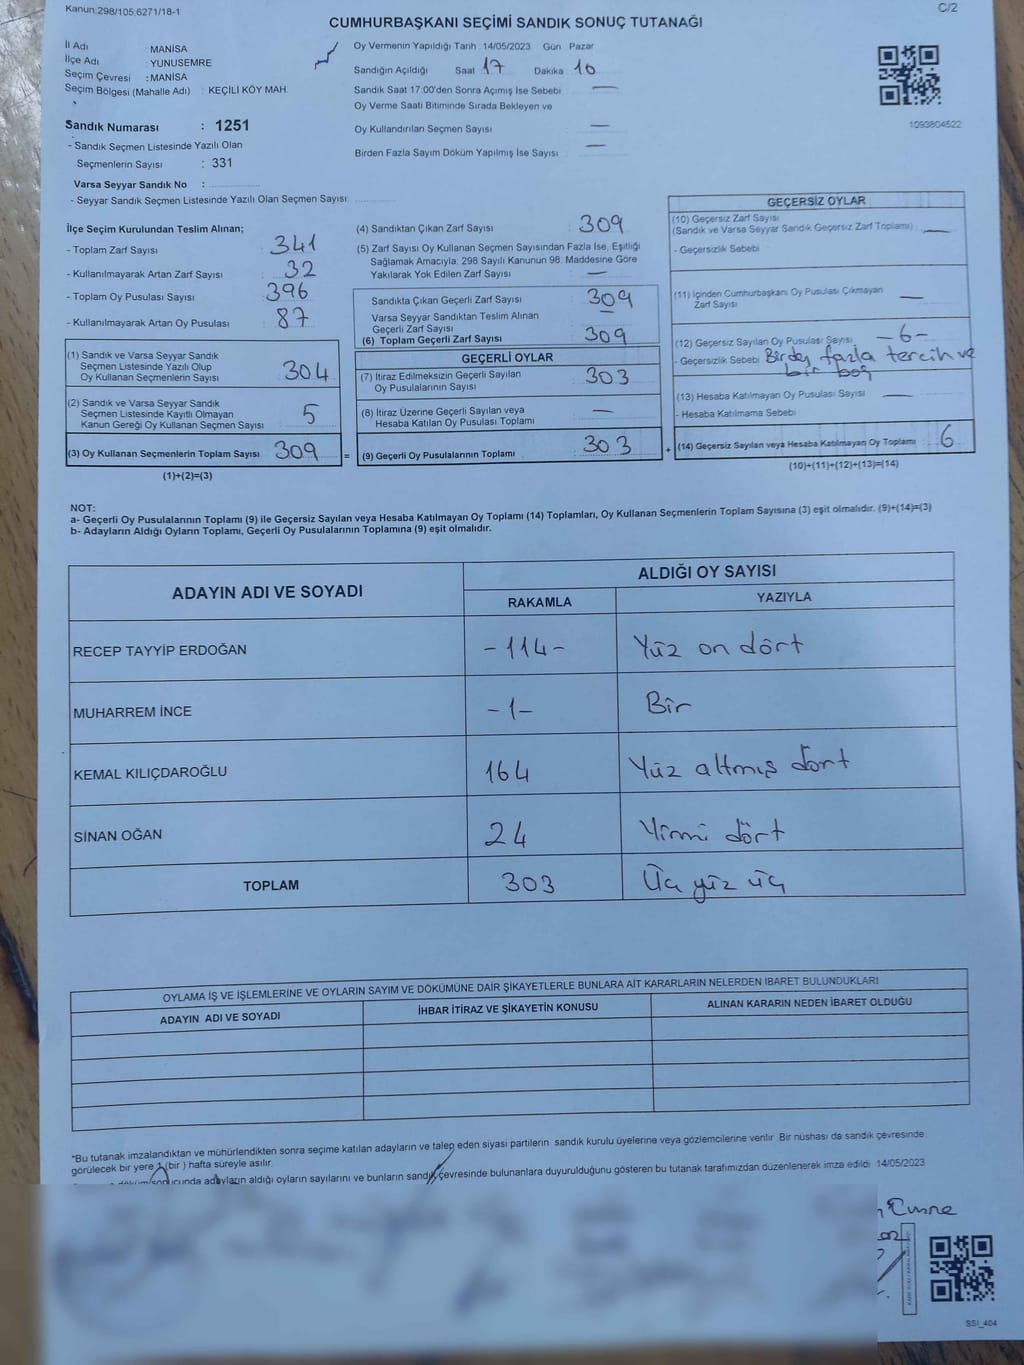 Kanun:298/105;6271/18-1
C/2
CUMHURBAŞKANI SEÇİMİ SANDIK SONUÇ TUTANAĞI
İl Adı : MANİSA
İlçe Adı : YUNUSEMRE
Seçim Çevresi : MANİSA
Seçim Bölgesi (Mahalle Adı) : KEÇİLİ KÖY MAH.
Sandık Numarası : 1251
- Sandık Seçmen Listesinde Yazılı Olan
Seçmenlerin Sayısı : 331
Varsa Seyyar Sandık No :
- Seyyar Sandık Seçmen Listesinde Yazılı Olan Seçmen Sayısı:
Oy Vermenin Yapıldığı Tarih :14/05/2023 Gün Pazar
Sandığın Açıldığı Saat 17 Dakika 10
Sandık Saat 17:00'den Sonra Açımış İse Sebebi —
Oy Verme Saati Bitiminde Sırada Bekleyen ve
Oy Kullandırılan Seçmen Sayısı —
Birden Fazla Sayım Döküm Yapılmış İse Sayısı —
1093804522
İlçe Seçim Kurulundan Teslim Alınan;
- Toplam Zarf Sayısı : 341
- Kullanılmayarak Artan Zarf Sayısı : 32
- Toplam Oy Pusulası Sayısı : 396
- Kullanılmayarak Artan Oy Pusulası : 87
(1) Sandık ve Varsa Seyyar Sandık
Seçmen Listesinde Yazılı Olup
Oy Kullanan Seçmenlerin Sayısı 304
(2) Sandık ve Varsa Seyyar Sandık
Seçmen Listesinde Kayıtlı Olmayan
Kanun Gereği Oy Kullanan Seçmen Sayısı 5
(3) Oy Kullanan Seçmenlerin Toplam Sayısı 309 =
(1)+(2)=(3)
(4) Sandıktan Çıkan Zarf Sayısı : 309
(5) Zarf Sayısı Oy Kullanan Seçmen Sayısından Fazla İse, Eşitliği
Sağlamak Amacıyla; 298 Sayılı Kanunun 98 Maddesine Göre
Yakılarak Yok Edilen Zarf Sayısı : —
Sandıkta Çıkan Geçerli Zarf Sayısı : 309
Varsa Seyyar Sandıktan Teslim Alınan
Geçerli Zarf Sayısı : —
(6) Toplam Geçerli Zarf Sayısı : 309
GEÇERLİ OYLAR
(7) İtiraz Edilmeksizin Geçerli Sayılan
Oy Pusulalarının Sayısı : 303
(8) İtiraz Üzerine Geçerli Sayılan veya
Hesaba Katılan Oy Pusulası Toplamı : —
(9) Geçerli Oy Pusulalarının Toplamı : 303 +
GEÇERSİZ OYLAR
(10) Geçersiz Zarf Sayısı
(Sandık ve Varsa Seyyar Sandık Geçersiz Zarf Toplamı) : —
- Geçersizlik Sebebi
(11) İçinden Cumhurbaşkanı Oy Pusulası Çıkmayan
Zarf Sayısı —
(12) Geçersiz Sayılan Oy Pusulası Sayısı : -6-
- Geçersizlik Sebebi Birden fazla tercih ve
bir boş
(13) Hesaba Katılmayan Oy Pusulası Sayısı : —
- Hesaba Katılmama Sebebi
(14) Geçersiz Sayılan veya Hesaba Katılmayan Oy Toplamı : 6
(10)+(11)+(12)+(13)=(14)
NOT:
a- Geçerli Oy Pusulalarının Toplamı (9) ile Geçersiz Sayılan veya Hesaba Katılmayan Oy Toplamı (14) Toplamları, Oy Kullanan Seçmenlerin Toplam Sayısına (3) eşit olmalıdır. (9)+(14)=(3)
b- Adayların Aldığı Oyların Toplamı, Geçerli Oy Pusulalarının Toplamına (9) eşit olmalıdır.
ADAYIN ADI VE SOYADI
ALDIĞI OY SAYISI
RAKAMLA YAZIYLA
RECEP TAYYİP ERDOĞAN -114- Yüz on dört
MUHARREM İNCE -1- Bir
KEMAL KILIÇDAROĞLU 164 Yüz altmış dört
SİNAN OĞAN 24 Yirmi dört
TOPLAM 303 Üç yüz üç
OYLAMA İŞ VE İŞLEMLERİNE VE OYLARIN SAYIM VE DÖKÜMÜNE DAİR ŞİKAYETLERLE BUNLARA AİT KARARLARIN NELERDEN İBARET BULUNDUKLARI
ADAYIN ADI VE SOYADI İHBAR İTİRAZ VE ŞİKAYETİN KONUSU ALINAN KARARIN NEDEN İBARET OLDUĞU
*Bu tutanak imzalandıktan ve mühürlendikten sonra seçime katılan adayların ve talep eden siyasi partilerin sandık kurulu üyelerine veya gözlemcilerine verilir. Bir nüshası da sandık çevresinde
görülecek bir yere 1 (bir ) hafta süreyle asılır.
adayların aldığı oyların sayılarını ve bunların sandık çevresinde bulunanlara duyurulduğunu gösteren bu tutanak tarafımızdan düzenlenerek imza edildi 14/05/2023
SSI_404